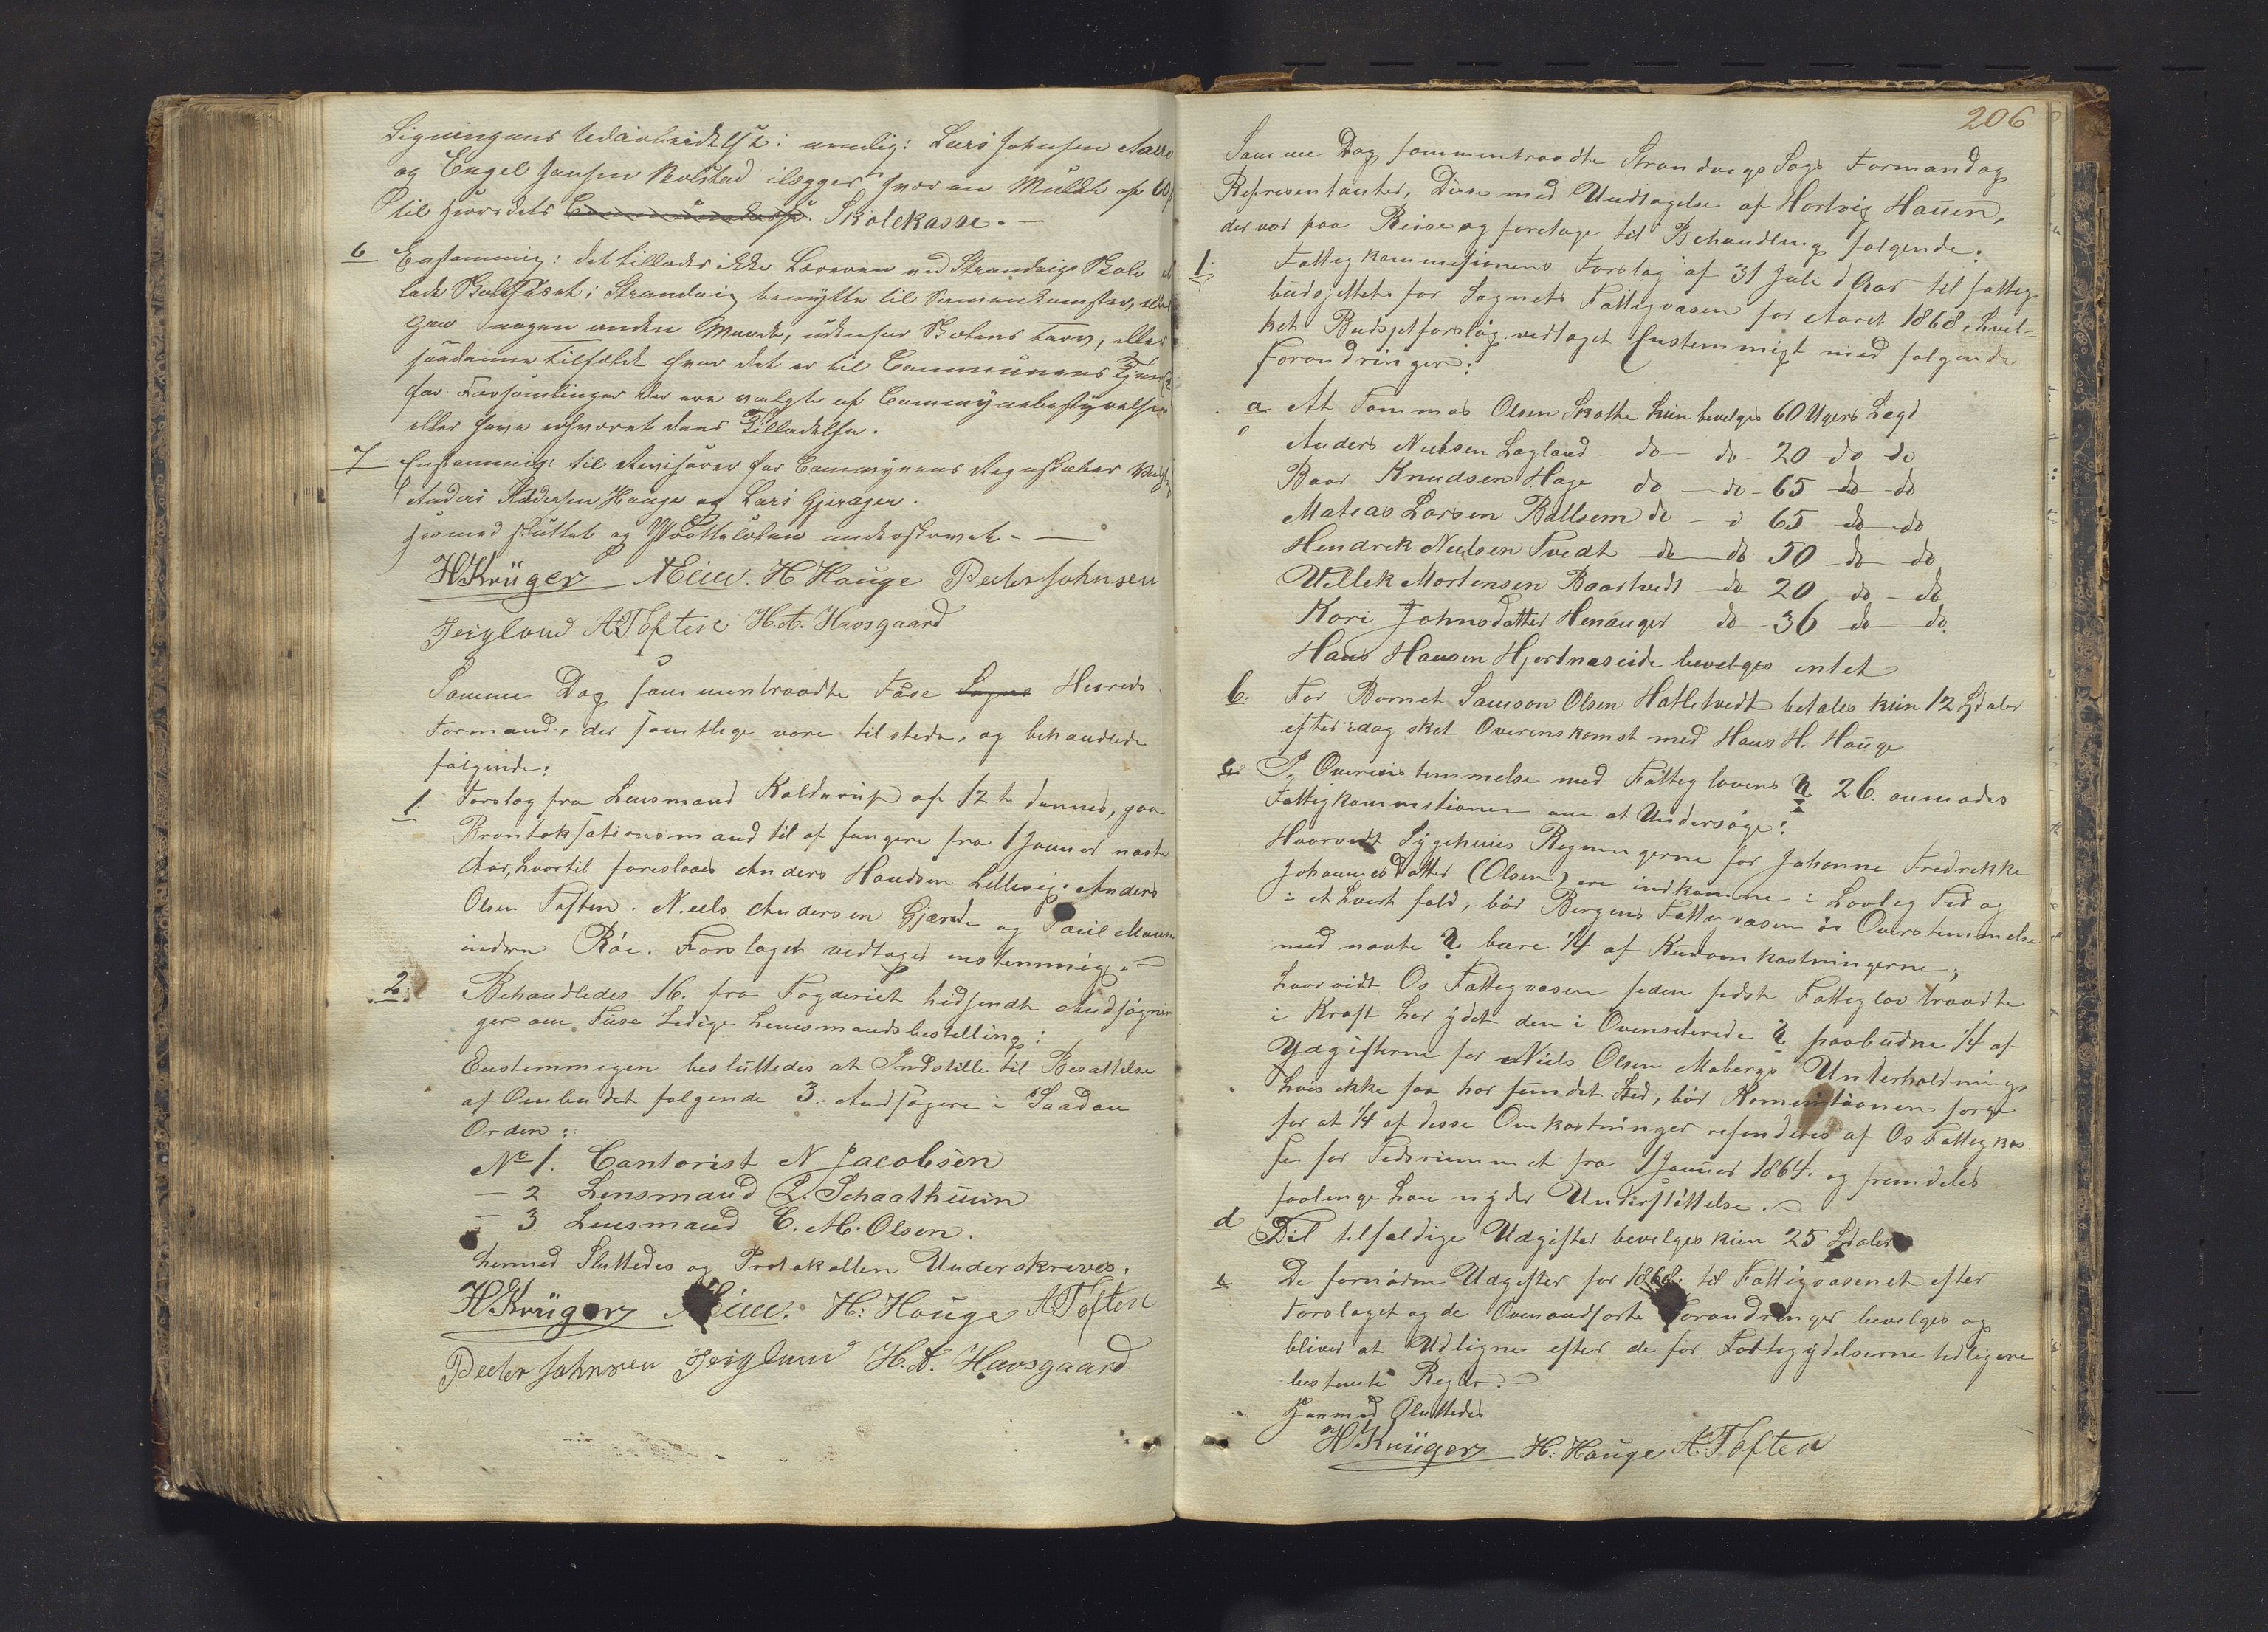 Ligningens Udarbeidelse: nemlig: Lars Johnsen
og Engel Hansen Bolstad ilægges hver en Mulkt af 60
til Herredets Skolekasse. —
6 Enstemmig: det tillades ikke Læreren ved Strandvigs Skole
lade Skolehuset i Strandvig benytte til Sammenkomster, eller
paa nogen anden Maade, udenfor Skolens Tarv, eller
saadanne Tilfælde hvor det er til Communens Tjeneste
for Forsamlinger der ere valgte af Communebestyrelsen
eller have erhvervet dens Tilladelse.
7 Enstemmig: til Revisorer for Communens Regnskaber
Anders Andersen Hauge og Lars Gjerager.
Hermed sluttet og Protokolen underskrevet. —
HKrüger H Hauge Peder Johnsen
A Toften H.A. Havsgaard
Samme Dag sammentraadte Fuse Sogns Herreds
Formænd, der samtlige vare tilstede, og behandlede
følgende:
1 Forslag fra Lensmand Kalderup af 12te dennes, paa
Brantaksationsmænd til at fungere fra 1 Januar næste
Aar, hvortil foreslaaes Anders Handsen Lillevig. Anders
Olsen Toften. Neels Andersen Gjærde og Poul
indren Röe. Forslaget vedtaget enstemmig. —
2. Behandledes 16. fra Fogderiet hidsendte Andsøgnin
ger om Fuse Ledige Lensmandsbestelling:
Enstemmigen besluttedes at Indstille til Besættelse
af Ombudet følgende 3. Andsøgere i Saadan
Orden:
No 1. Cantorist N Jacobsen
— 2 Lensmand L. Schaathuun
— 3. Lensmand C. M. Olsen.
hermed Sluttedes og Protokollen Underskreves.
HKrüger H: Hauge A Toften
Peder Johnsen H.A. Havsgaard
206
Samme Dag sammentraadte Strandvigs Sogs Formænd og
Representanter, Disse med Undtagelse af Hartvig Hauen,
der var paa Reise og foretoge til Behandling følgende:
1. Fattigkommisionens Forslag af 31 Juli d Aar til fattig
budsjettet for Sognets Fattigvæsen for Aaret 1868, hvil-
ket Budsjetforslag vedtaget Enstemmigt med følgende
Forandringer:
a. At Tommas Olsen Skotte kun bevelges 60 Ugers Lægd
Anders Nielsen Lygland - do - do - 20 - do do
Baar Knudsen Hage do - do - 65 do do
Mateas Larsen Ballsem do - d 65 do do
Hendrek Neelsen Tvedt do do 50 do do
Villek Mortensen Baartvedt do 20 do do
Kari Johnsdatter Henanger do - 36 do do
Hans Hansen Hjertnæseide bevelges entet
b. For Barnet Samson Olsen Hatletvedt betales kun 12 Spdaler
efter idag sket Overenskomst med Hans H. Hauge
c. I Overeinstemmelse med Fattiglovens § 26. anmodes
Fattigkommissionen om at Undersøge:
Hvorvidt Sygehuus Regningerne for Johanne Fredrikke
Johannesdatter (Olsen) ere indkomne i Lovleg Tid og
i et hvert fald, bör Bergens Fattigvæsen i Overstemmelse
med nævte § bære ¼ af Kuromkostningerne;
hvorvidt Os Fattigvæsen siden sidste Fattiglov traadte
i Kraft har ydet den i Ovenciterede § paabudne ¼ af
Udgifterne for Niels Olsen Mobergs Underholdnings
Hvis ikke saa har fundet Sted, bör Kommissionen sørge
for at ¼ af disse Omkostninger refunderes af Os Fattigkas
se for Tidsrummet fra 1 Januar 1864. og fremdeles
saalenge han nyder Understöttelse. —
d Til tilfældige Udgifter bevelges kun 25 Spdaler
e De fornødne Udgifter for 1868. til Fattigvæsenet efter
Forslaget og de Ovenanførte Forandringer bevelges og
bliver at Udligne efter de for Fattigydelserne tidligere
bestemte Regler. —
Hermed Sluttedes
HKrüger H: Hauge A Toften